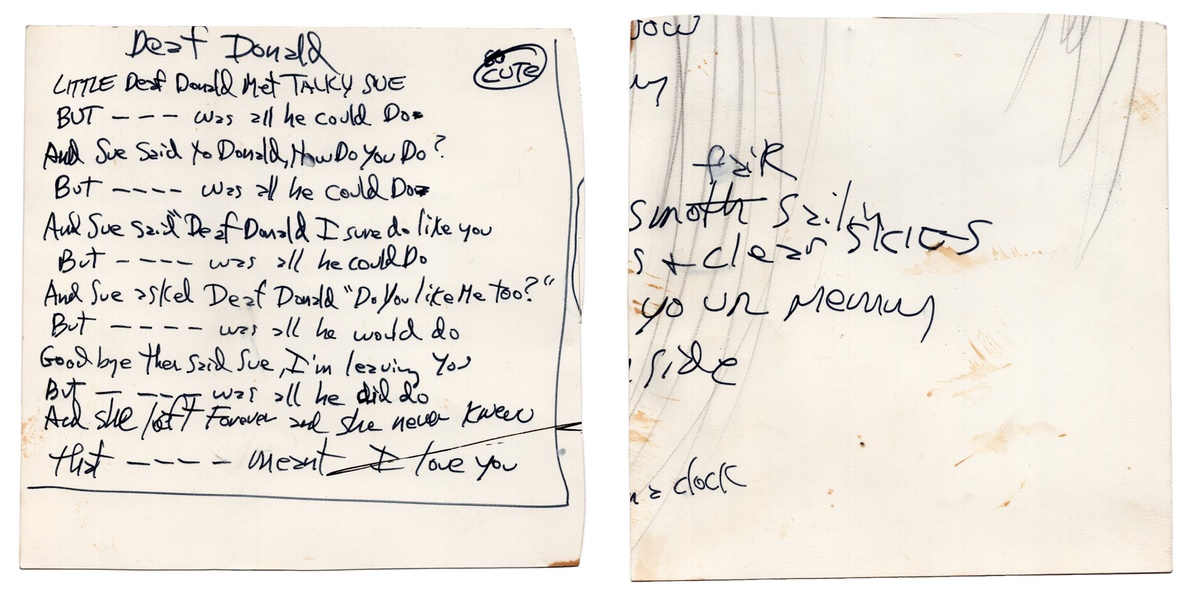 Deaf Donald
SO CUTE
LITTLE Deaf Donald Met TALKY SUE
BUT ---- was all he could Do
And Sue Said to Donald, How Do You Do?
But ---- was all he could Do
And Sue said "Deaf Donald I sure do like you
But ---- was all he could Do
And Sue asked Deaf Donald "Do You like Me too?"
But ---- was all he would do
Goodbye then said Sue, I'm leaving You
But ---- was all he did do
And she left Forever and she never Knew
that ---- meant I love you
fair
smooth Sailing
s + clear skies
your memory
side
a clock